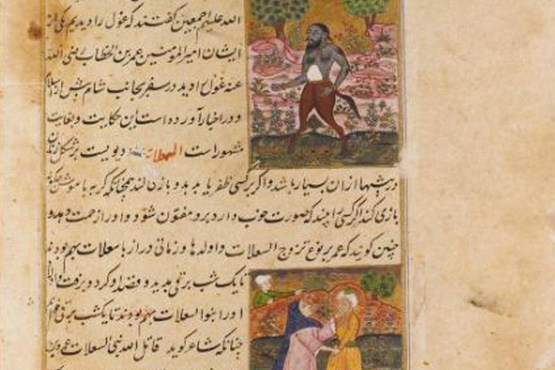 الله علیهم اجمعین گفتند که غول را دیدیم یکی از
ایشان امیر المؤمنین عمر بن الخطاب رضی الله
عنه غول را دید در سفر بجانب شام پیش از اسلام
و در اخبار آورده است این حکایت و بغایت
مشهور است السعلات دیویست بر شکل زنان
در بیشها ازان بسیار باشد و اگر بر کسی ظفر یابد بدو بازی کند همچنانکه گربه با موش
بازی کند اگر کسی را بیند که صورت خوب دارد برو مفتون شود و او را زحمت دهد و
چنین گویند که عمر بن یربوع تزوج السعلات و اولدها و زمانی دراز با سعلات بهم بودند
تا یک شب برقی بدید و قصد او کرد و برفت و
او را بنو السعلات بودند تا یک شب برقی
چنانکه شاعر گوید قاتل الله بنی السعلات عمرو بن